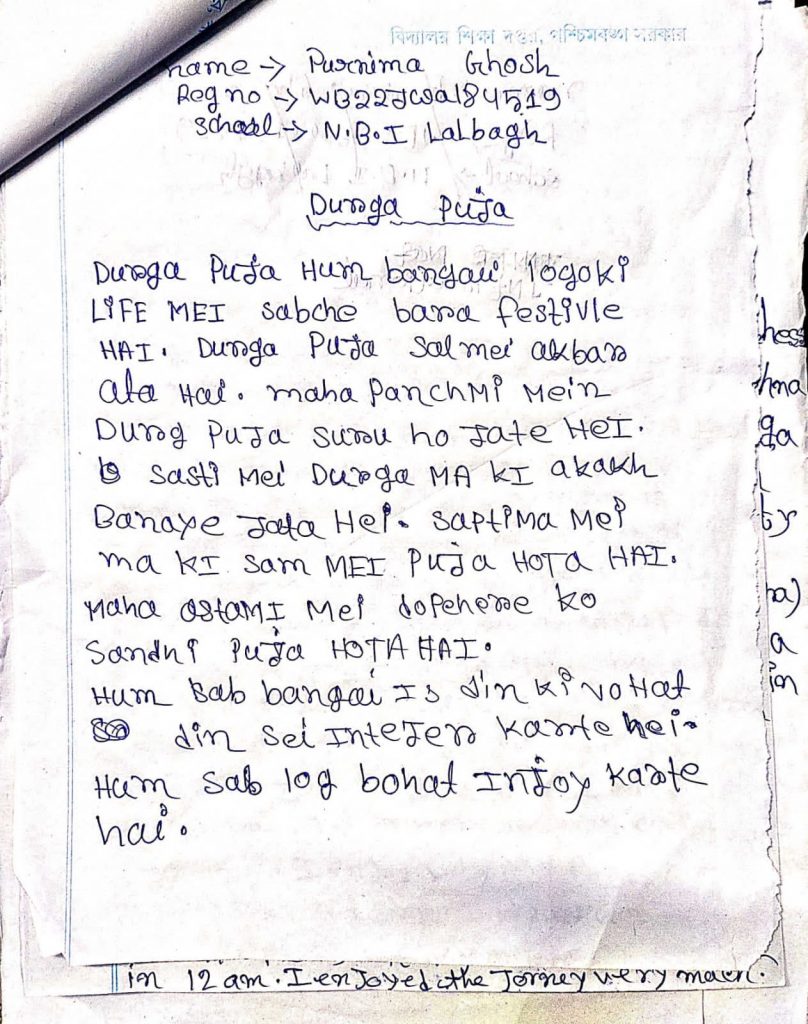 বিদ্যালয় শিক্ষা দপ্তর, পশ্চিমবঙ্গ সরকার
name → Purnima Ghosh
Reg no → WB22JCWal84519
School → N.B.I Lalbagh
Durga PUJA
Durga PUJA HUM bangali logoki
LIFE MEI sabche bara festivle
HAI. Durga PUJA Salmei akbar
ata Hai. maha PanchMi Mein
Durg PUJA suru ho Jate HEI.
Sasti Mei Durga MA KI akakh
Banaye Jata Hei. SaptiMa Mei
ma KI sam MEI PUJA HOTA HAI.
Maha astaMI Mei dopehere ko
Sandhi PUJA HOTA HAI.
HUM Sab bangai Is din ki voHat
din sei InteJer karte hei.
HUM sab log bohat InJoy karte
hai.
hess
hna
ga
ty
na)
a
in
in 12 am. I enJoyed the Jorney very much.